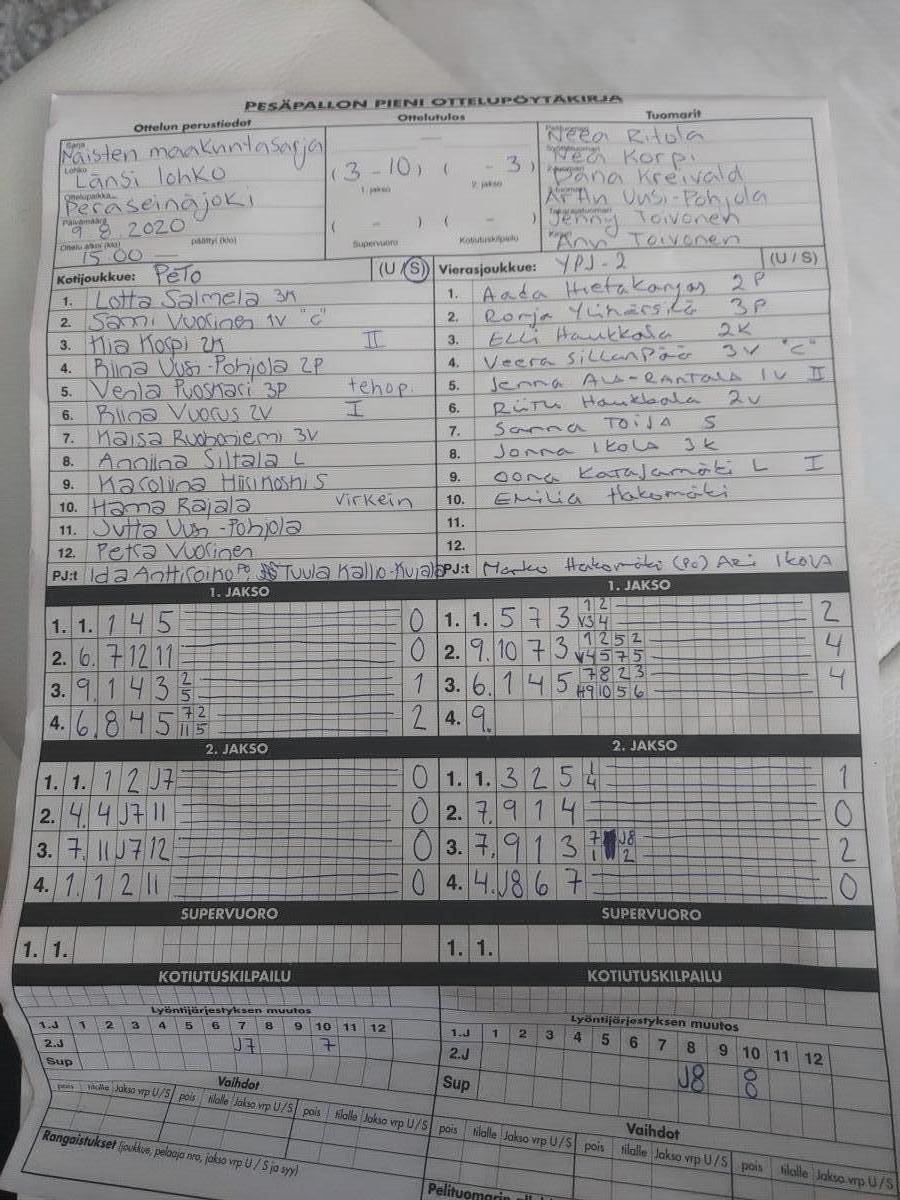 PESÄPALLON PIENI OTTELUPÖYTÄKIRJA
Ottelun perustiedot Ottelutulos Tuomarit
Sarja Naisten maakuntasarja
Lohko Länsi lohko
Ottelupaikka Peräseinäjoki
Päivämäärä 9 8 2020
Ottelu alkoi (klo) 15 00 päättyi (klo)
(3 - 10) ( - 3)
1. jakso 2. jakso
( - ) ( - )
Supervuoro Kotiutuskilpailu
Neea Ritola
Nea Korpi
Dana Kreivald
Uusi-Pohjola
Jenny Toivonen
Ann Toivonen
Kotijoukkue: PeTo (U / S) Vierasjoukkue: YPJ-2 (U / S)
1. Lotta Salmela 3K
2. Sami Vuorinen 1V "C"
3. Kia Kospi 2K II
4. Riina Uusi-Pohjola 2P
5. Venla Puoskari 3P tehop.
6. Riina Vuorus 2V I
7. Kaisa Ruohoniemi 3V
8. Anniina Siltala L
9. Karoliina S
10. Hanna Rajala virkein
11. Jutta Uusi-Pohjola
12. Petra Vuorinen
PJ:t Ida Anttiroiko PO Tuula Kallio-Kujala
1. Aada Hietakangas 2P
2. Ronja Ylihärsilä 3P
3. Elli Haukkala 2K
4. Veera Sillanpää 3V "C"
5. Jenna Ala-Rantala 1V II
6. Riitu Haukkala 2V
7. Sanna Toija S
8. Jonna Ikola 3K
9. Oona Katajamäki L I
10. Emilia Hakomäki
11.
12.
PJ:t Marko Hakomäki (PO) Ari Ikola
1. JAKSO 1. JAKSO
1. 1. 1 4 5 0
2. 6. 7 12 11 0
3. 9. 1 4 3 2 1
5
4. 6. 8 4 5 7 2 2
11 5
1. 1. 5 7 3 1 2 2
V3 4
2. 9. 10 7 3 1 2 5 2 4
V4 5 7 5
3. 6. 1 4 5 7 8 2 3 4
H9 10 5 6
4. 9.
2. JAKSO 2. JAKSO
1. 1. 1 2 J7 0
2. 4. 4 J7 11 0
3. 7. 11 J7 12 0
4. 1. 1 2 11 0
1. 1. 3 2 5 1 1
4
2. 7. 9 1 4 0
3. 7. 9 1 3 7 J8 2
1 2
4. 4. J8 6 7 0
SUPERVUORO SUPERVUORO
1. 1. 1. 1.
KOTIUTUSKILPAILU KOTIUTUSKILPAILU
Lyöntijärjestyksen muutos
1.J 1 2 3 4 5 6 7 8 9 10 11 12
2.J J7 7
Sup
Lyöntijärjestyksen muutos
1.J 1 2 3 4 5 6 7 8 9 10 11 12
2.J J8 8
Sup
Vaihdot
pois tilalle Jakso vrp U/S pois tilalle Jakso vrp U/S pois tilalle Jakso vrp U/S
Rangaistukset (joukkue, pelaaja nro, jakso vrp U / S ja syy)
Vaihdot
pois tilalle Jakso vrp U/S pois tilalle Jakso vrp U/S pois tilalle Jakso vrp U/S
Pelituomarin